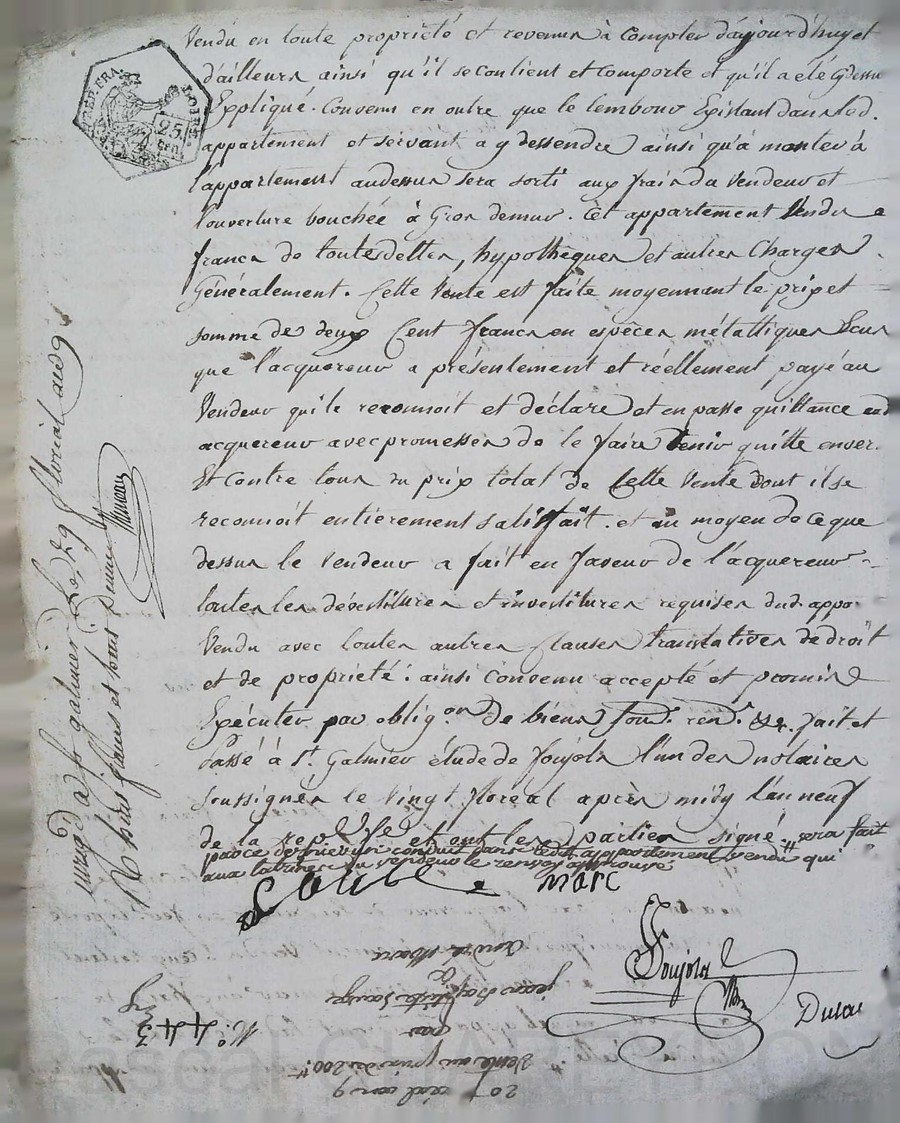 Vendu en toute proprieté et revenus à Compter d'aujourd'huy et
d'ailleurs ainsi qu'il se contient et comporte et qu'il a été cy dessu
Expliqué. Convenu en outre que le tembour Existant dans lod.
appartement et servant a y dessendre ainsi qu'a monter à
l'appartement audessus sera sorti aux frais du Vendeur et
l'ouverture bouchée à Gros de mur. Cet appartement Vendu
francs de toutes dettes, hypothèques et autres Charges
Généralement. Cette Vente est faite moyennant le prix et
somme de deux Cent francs en espèces métalliques
que l'acquereur a présentement et réellement payé au
Vendeur qui le reconnoit et déclare et en passe quittance aud
acquereur avec promesses de le faire tenir quitte enver
Et Contre tous du prix total de Cette Vente dont il se
reconnoit entièrement satisfait. et au moyen de ce que
dessus le Vendeur a fait en faveur de l'acquereur
toutes les dévestitures et investitures requises dud. appt.
Vendu avec toutes autres Clauses translatives de droit
et de proprieté. ainsi Convenu accepté et promis
Exécuter par oblig.on de biens Soud. ren.on &c. fait et
Passé à St. Galmier étude de Soujols l'un des notaires
soussignés le vingt floréal après midy l'an neuf
de la rep. et ont les parties signé sera fait
dans ledit appartement vendu qui
aux latrines du vendeur le renvoy approuvé
marc
Soujols
Dulac
enregé a St galmier le 29 floréal an 9
20 floréal an 9
Vente au prix de 200 tt
par
jean Baptiste
a
andré Marc
N.° 443